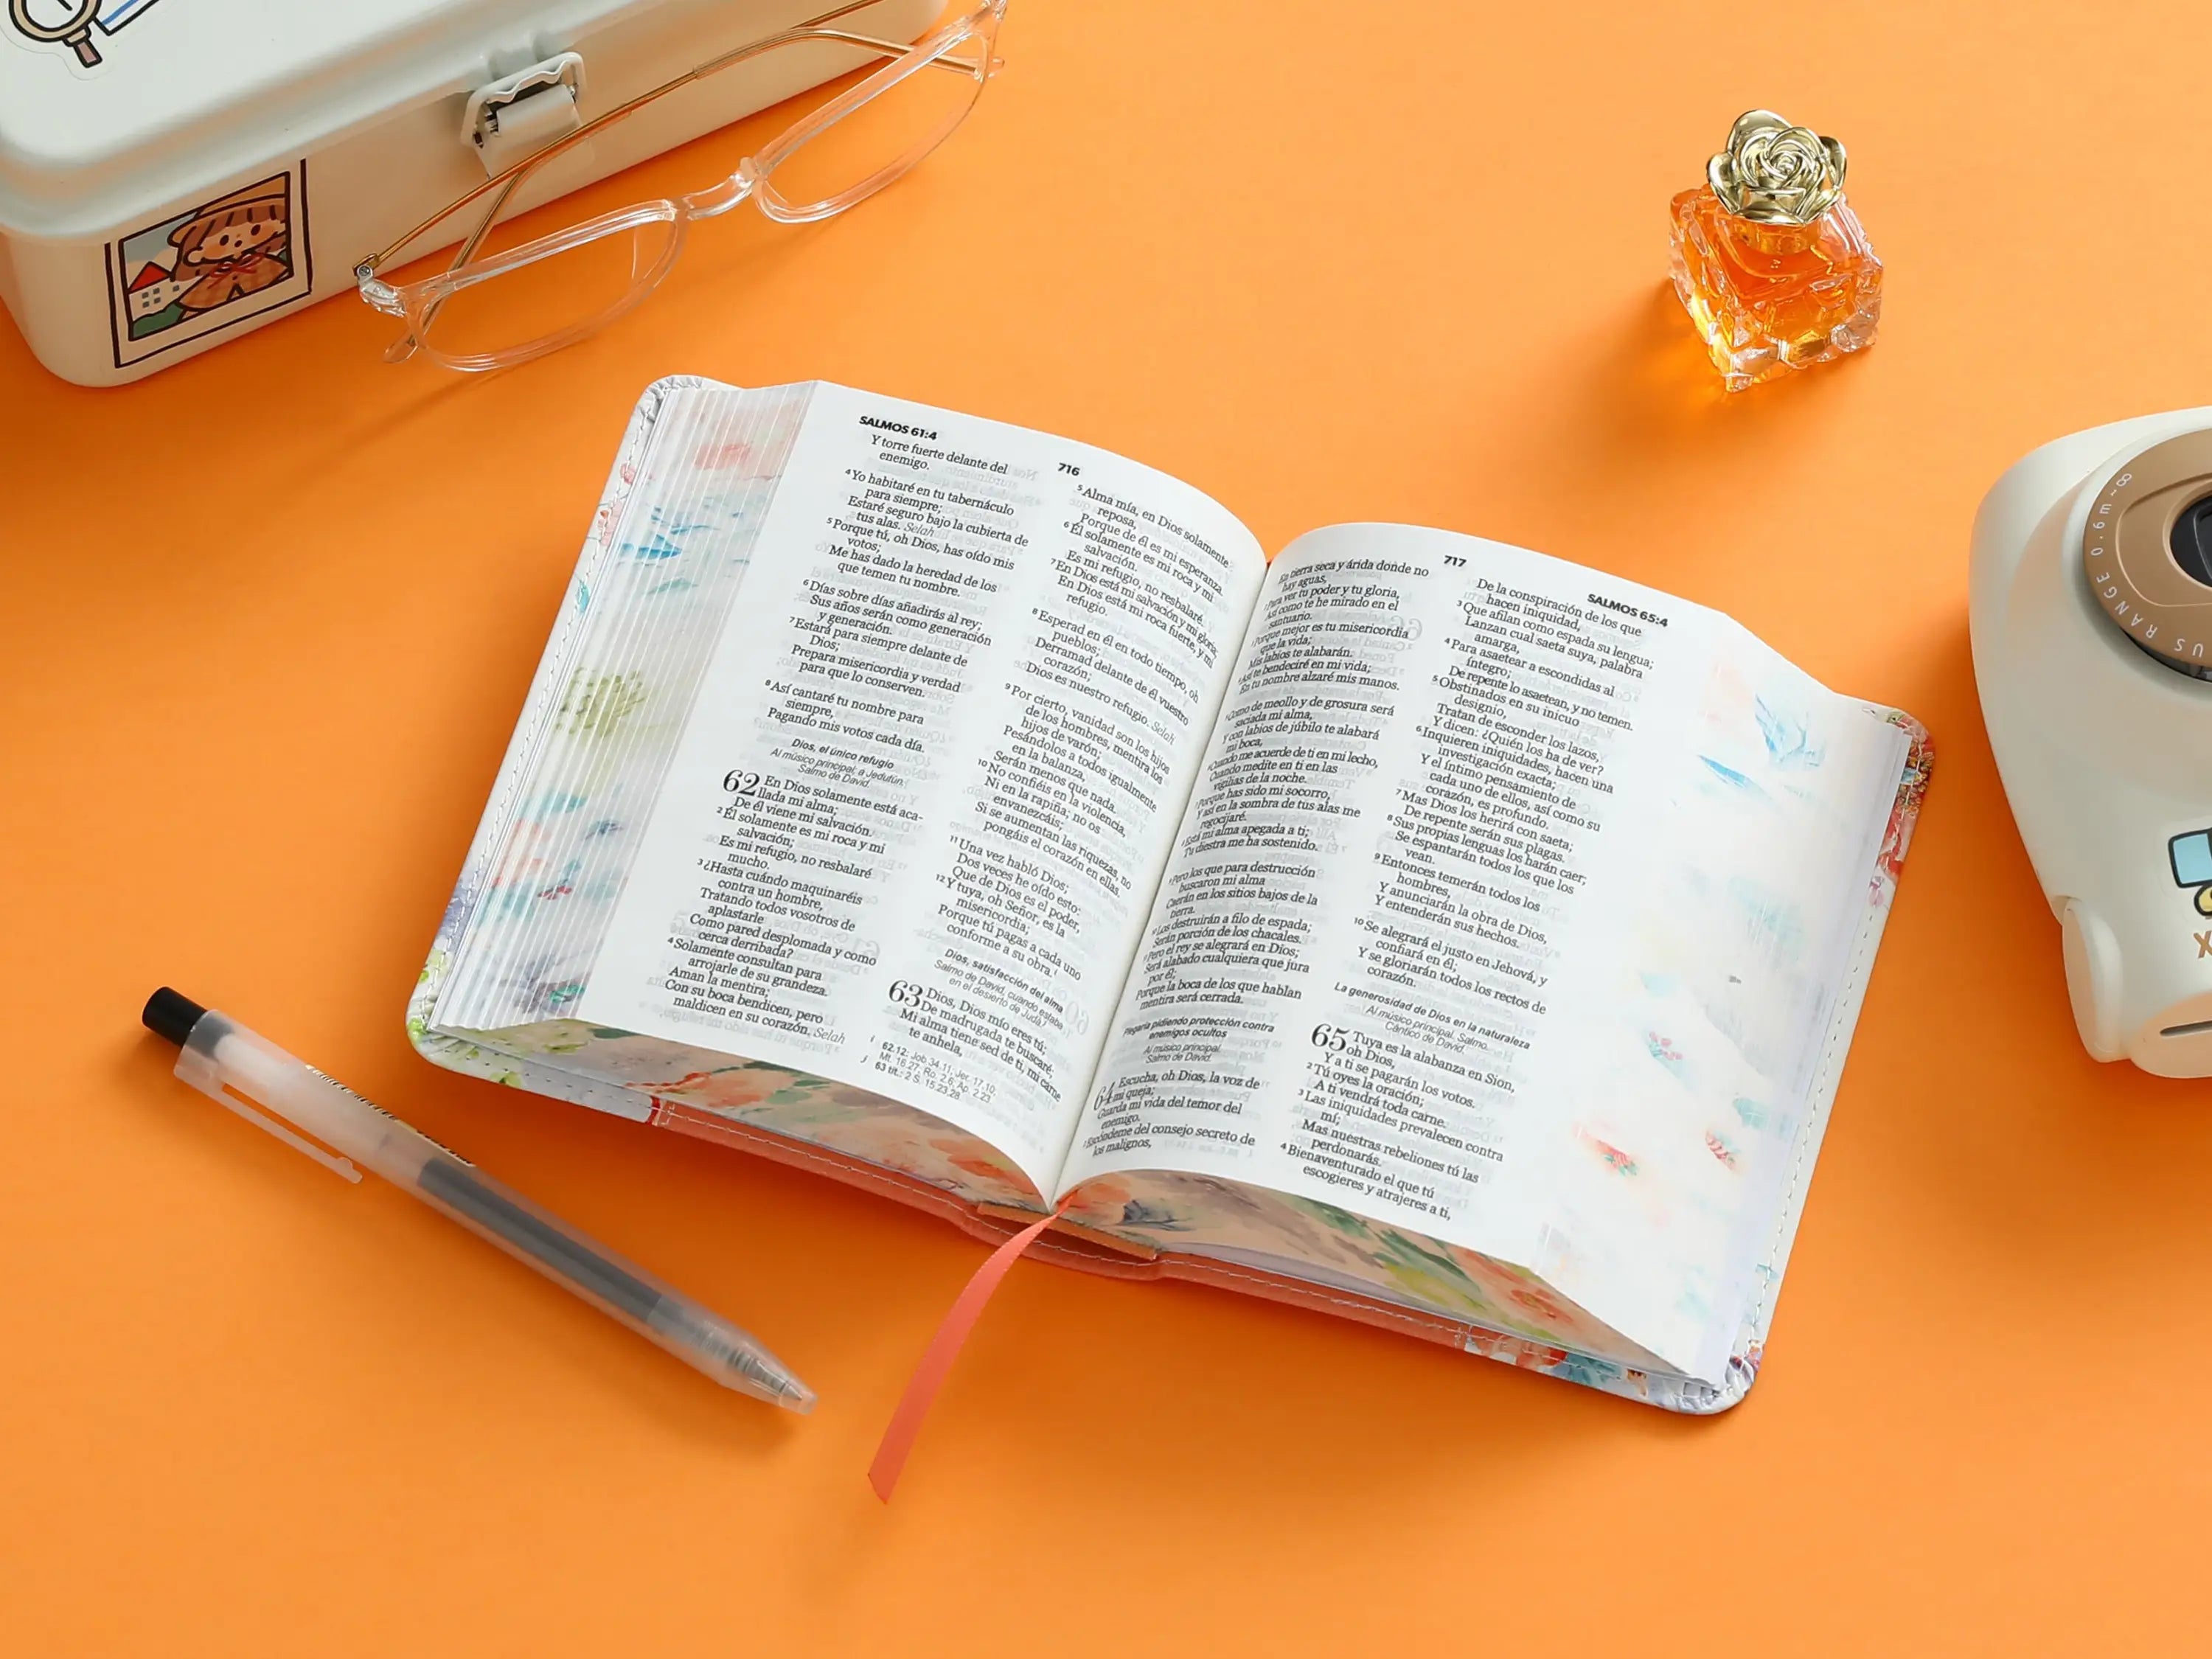 SALMOS 61:4
716
Y torre fuerte delante del
enemigo.
4 Yo habitaré en tu tabernáculo
para siempre;
Estaré seguro bajo la cubierta de
tus alas. Selah
5 Porque tú, oh Dios, has oído mis
votos;
Me has dado la heredad de los
que temen tu nombre.
6 Días sobre días añadirás al rey;
Sus años serán como generación
y generación.
7 Estará para siempre delante de
Dios;
Prepara misericordia y verdad
para que lo conserven.
8 Así cantaré tu nombre para
siempre,
Pagando mis votos cada día.
Dios, el único refugio
Al músico principal; a Jedutún.
Salmo de David.
62 En Dios solamente está aca-
llada mi alma;
De él viene mi salvación.
2 Él solamente es mi roca y mi
salvación;
Es mi refugio, no resbalaré
mucho.
3 ¿Hasta cuándo maquinaréis
contra un hombre,
Tratando todos vosotros de
aplastarle
Como pared desplomada y como
cerca derribada?
4 Solamente consultan para
arrojarle de su grandeza.
Aman la mentira;
Con su boca bendicen, pero
maldicen en su corazón. Selah
5 Alma mía, en Dios solamente
reposa,
Porque de él es mi esperanza.
6 Él solamente es mi roca y mi
salvación.
Es mi refugio, no resbalaré.
7 En Dios está mi salvación y mi gloria;
En Dios está mi roca fuerte, y mi
refugio.
8 Esperad en él en todo tiempo, oh
pueblos;
Derramad delante de él vuestro
corazón;
Dios es nuestro refugio. Selah
9 Por cierto, vanidad son los hijos
de los hombres, mentira los
hijos de varón;
Pesándolos a todos igualmente
en la balanza,
Serán menos que nada.
10 No confiéis en la violencia,
Ni en la rapiña; no os
envanezcáis;
Si se aumentan las riquezas, no
pongáis el corazón en ellas.
11 Una vez habló Dios;
Dos veces he oído esto:
Que de Dios es el poder,
12 Y tuya, oh Señor, es la
misericordia;
Porque tú pagas a cada uno
conforme a su obra.
Dios, satisfacción del alma
Salmo de David, cuando estaba
en el desierto de Judá.
63 Dios, Dios mío eres tú;
De madrugada te buscaré;
Mi alma tiene sed de ti, mi carne
te anhela,
62.12: Job 34.11; Jer. 17.10;
Mt. 16.27; Ro. 2.6; Ap. 2.23.
63 tít.: 2 S. 15.23,28.
717
SALMOS 65:4
En tierra seca y árida donde no
hay aguas,
Para ver tu poder y tu gloria,
Así como te he mirado en el
santuario.
Porque mejor es tu misericordia
que la vida;
Mis labios te alabarán.
Así te bendeciré en mi vida;
En tu nombre alzaré mis manos.
Como de meollo y de grosura será
saciada mi alma,
Y con labios de júbilo te alabará
mi boca,
Cuando me acuerde de ti en mi lecho,
Cuando medite en ti en las
vigilias de la noche.
Porque has sido mi socorro,
Y así en la sombra de tus alas me
regocijaré.
Está mi alma apegada a ti;
Tu diestra me ha sostenido.
Pero los que para destrucción
buscaron mi alma
Caerán en los sitios bajos de la
tierra.
Los destruirán a filo de espada;
Serán porción de los chacales.
Pero el rey se alegrará en Dios;
Será alabado cualquiera que jura
por él;
Porque la boca de los que hablan
mentira será cerrada.
Plegaria pidiendo protección contra
enemigos ocultos
Al músico principal.
Salmo de David.
64 Escucha, oh Dios, la voz de
mi queja;
Guarda mi vida del temor del
enemigo.
Escóndeme del consejo secreto de
los malignos,
De la conspiración de los que
hacen iniquidad,
3 Que afilan como espada su lengua;
Lanzan cual saeta suya, palabra
amarga,
4 Para asaetear a escondidas al
íntegro;
De repente lo asaetean, y no temen.
5 Obstinados en su inicuo
designio,
Tratan de esconder los lazos,
Y dicen: ¿Quién los ha de ver?
6 Inquieren iniquidades, hacen una
investigación exacta;
Y el íntimo pensamiento de
cada uno de ellos, así como su
corazón, es profundo.
7 Mas Dios los herirá con saeta;
De repente serán sus plagas.
8 Sus propias lenguas los harán caer;
Se espantarán todos los que los
vean.
9 Entonces temerán todos los
hombres,
Y anunciarán la obra de Dios,
Y entenderán sus hechos.
10 Se alegrará el justo en Jehová, y
confiará en él;
Y se gloriarán todos los rectos de
corazón.
La generosidad de Dios en la naturaleza
Al músico principal. Salmo.
Cántico de David.
65 Tuya es la alabanza en Sion,
oh Dios,
Y a ti se pagarán los votos.
2 Tú oyes la oración;
A ti vendrá toda carne.
3 Las iniquidades prevalecen contra
mí;
Mas nuestras rebeliones tú las
perdonarás.
4 Bienaventurado el que tú
escogieres y atrajeres a ti,
US RANGE 0.6m-∞